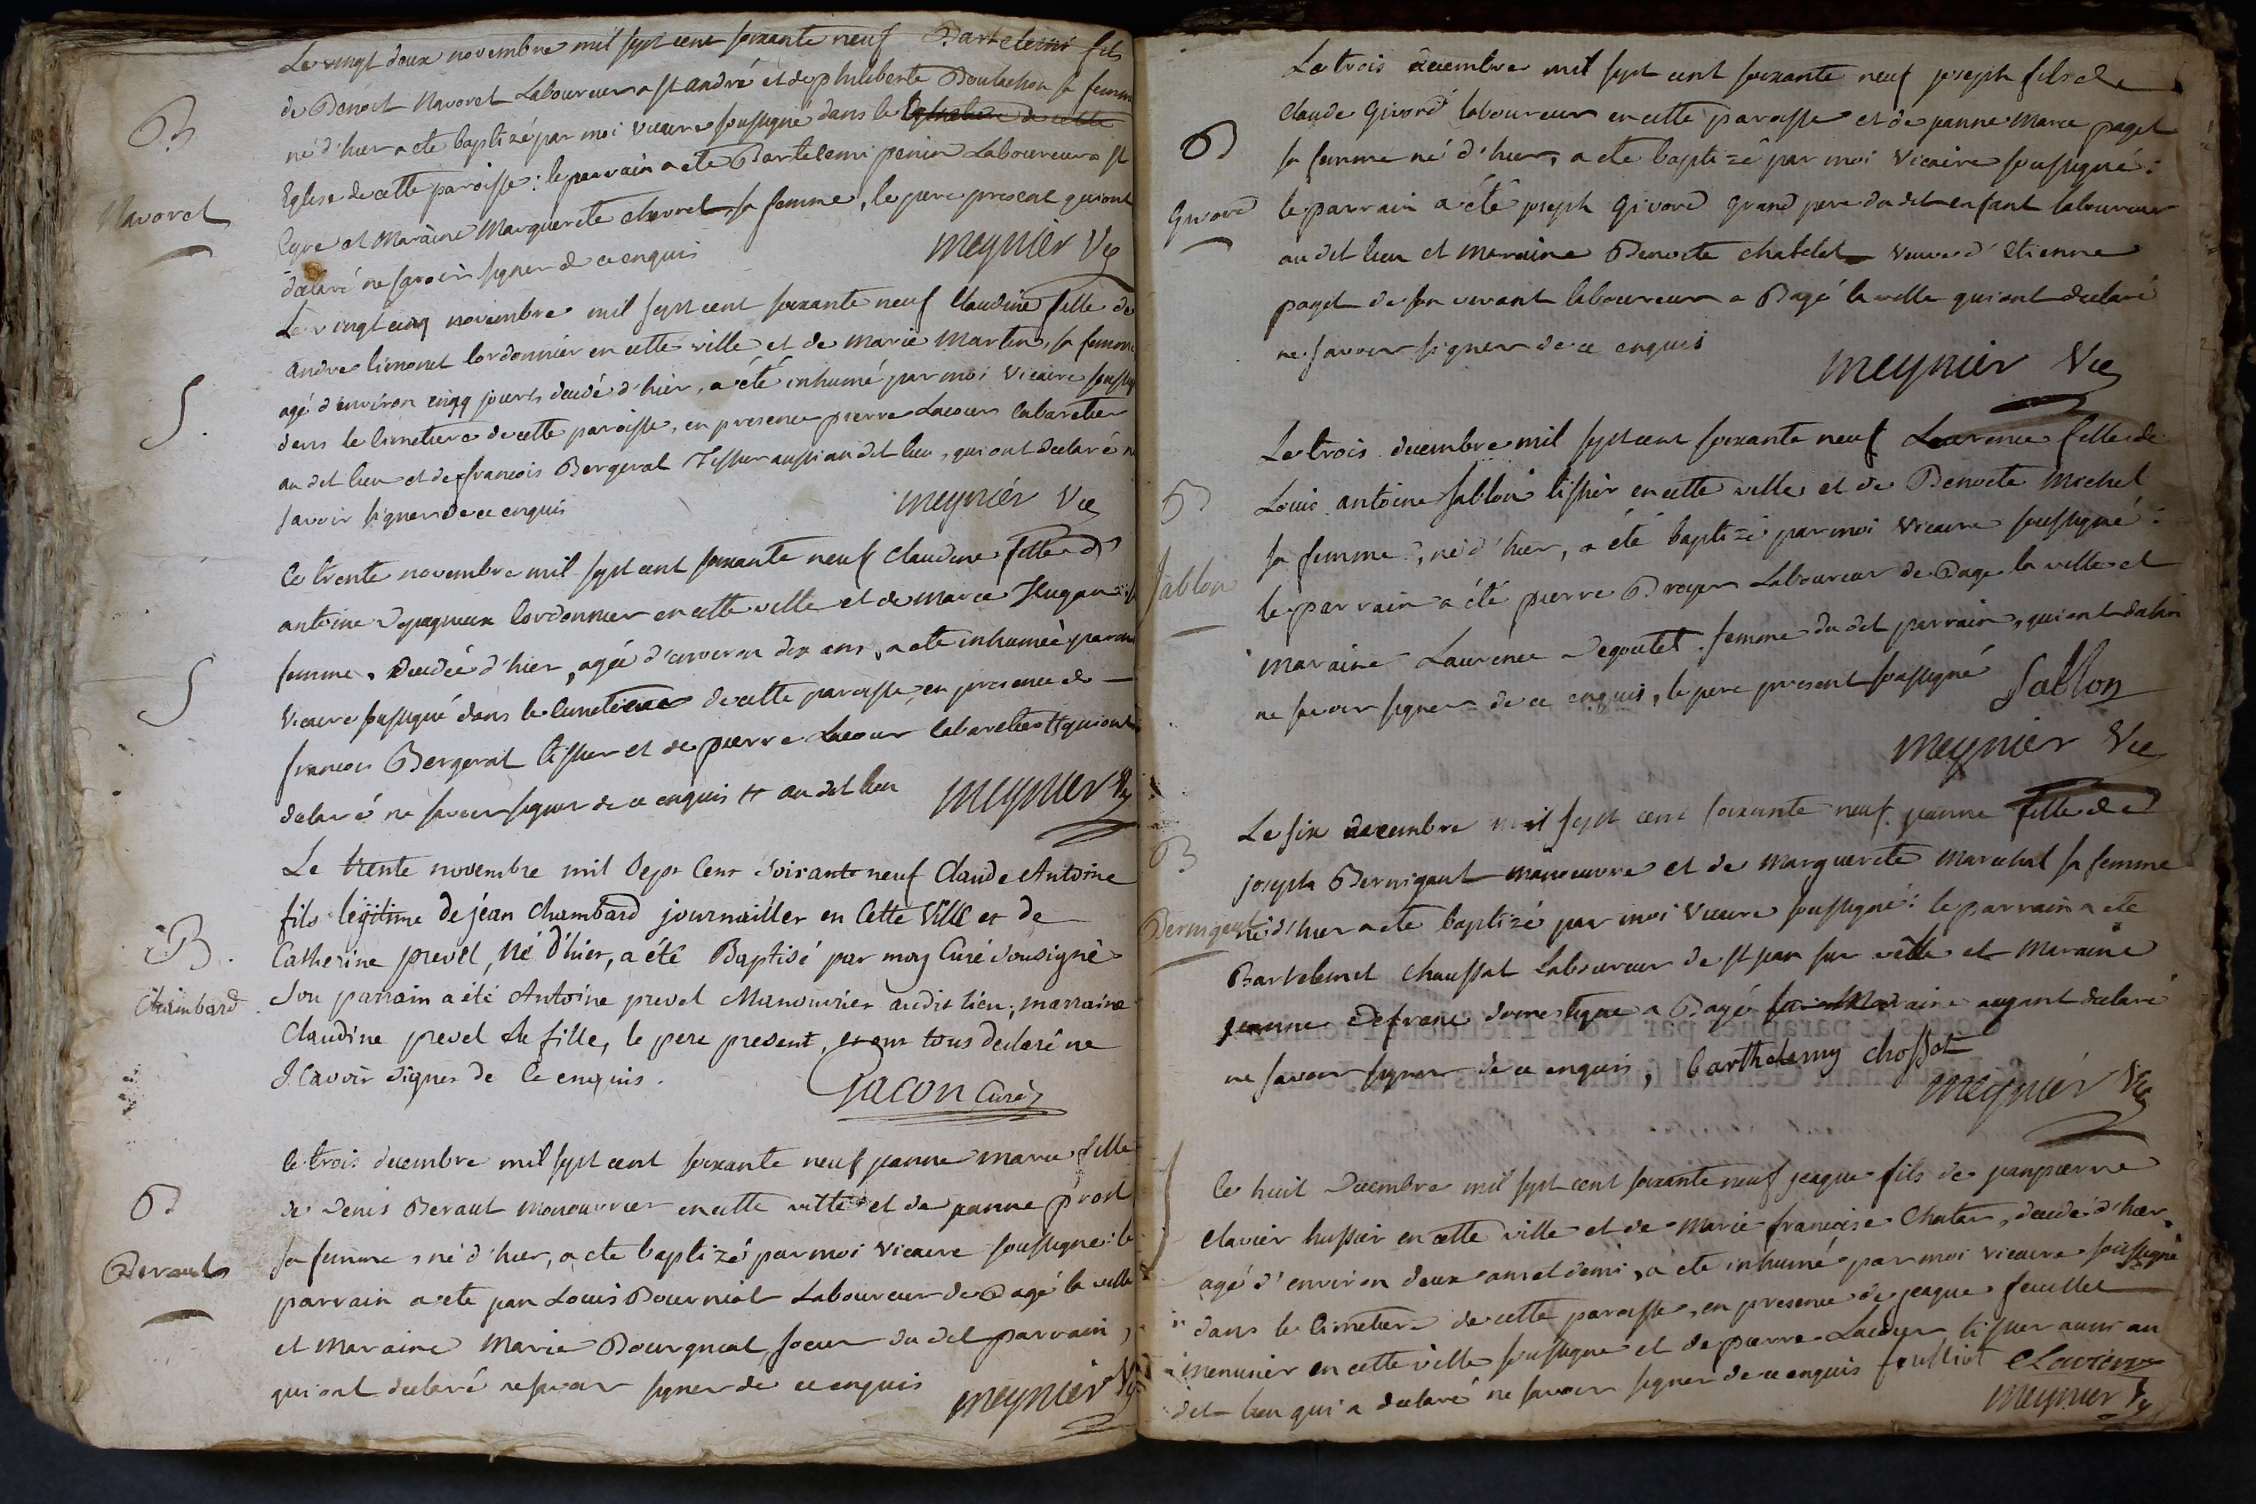 Le vingt deux novembre mil sept cent soixante neuf Bartelemi fils
de Benoit Navoret Laboureur a st andré et de philiberte Boulachon sa femme
né d'hier a ete baptizé par moi vicaire soussigné dans le
Eglise de cette paroisse : le parrain a ete Bartelemi penin Laboureur a st
Cyre et Maraine Marguerite chevrel sa femme, le pere present qui ont
declaré ne scavoir signer de ce enquis
meynier Vic
B
Navoret
Le vingt cinq novembre mil sept cent soixante neuf Claudine fille de
andre limonet Cordonnier en cette ville et de marie martin, sa femme
agé d'environ cinq jours decedé d'hier, a été inhumé par moi vicaire soussig
dans le Cimetiere de cette paroisse, en presence pierre Lacour Cabaretier
au dit lieu et de francois Bergerat Tissier aussi au dit lieu, qui ont declaré n
savoir signer de ce enquis
meyniér Vic
S.
Le trente novembre mil sept cent soixante neuf Claudine fille d'
antoine Cordonnier en cette ville et de marie Hugon sa
femme, decedée d'hier, agée d'environ dix ans, a ete inhumée par moi
Vicaire soussigné dans le Cimetiere de cette paroisse, en presence de
francois Bergerat tissier et de pierre Lacour Cabaretier # qui ont
declaré ne savoir signer de ce enquis # au dit lieu
meynier Vic
S
Le trente novembre mil Sept Cent Soixante neuf Claude Antoine
fils légitime De jéan Chambard journaillier en Cette Ville et de
Catherine prevel, Né d'hier, a été Baptisé par moy Curé Sousigné
Son parrain a été Antoine prevel Manouvrier audit lieu, marraine
Claudine prevel Sa fille, le pere present, et ont tous declaré ne
Scavoir Signer de Ce enquis.
Gacon Curé
B.
Chambard
Le trois decembre mil sept cent soixante neuf janne marie fille
de Denis Beraut manouvrier en cette ville et de janne prost
sa femme, né d'hier, a ete baptizé par moi vicaire soussigné : le
parrain a ete jan Louis Bourniol Laboureur de Bagé la ville
et Maraine Marie Bourgniol soeur du dit parrain,
qui ont declaré ne savoir signer de ce enquis
meynier Vic
B
Beraut
Le trois decembre mil sept cent soixante neuf joseph fils de
Claude Givord laboureur en cette paroisse et de janne Marie paget
sa femme né d'hier, a ete baptizé par moi Vicaire soussigné :
le parrain a été joseph Givord grand pere du dit enfant laboureur
au dit lieu et Maraine Benoite chatelet veuve d'Etienne
paget de son vivant laboureur a Bagé la ville qui ont declaré
ne savoir signer de ce enquis
meynier Vic
B
Givord
Le trois decembre mil sept cent soixante neuf Laurence fille de
Louis antoine Sablon tissier en cette ville et de Benoite Michel
sa femme, né d'hier, a été baptizé par moi vicaire soussigné :
le parrain a été pierre Broyer Laboureur de Bagé la ville et
maraine Laurence Degoutet femme du dit parrain, qui ont declaré
ne savoir signer de ce enquis, le pere present soussigné
Sablon
meynier Vic
B
Sablon
Le six decembre mil sept cent soixante neuf janne fille de
joseph Bernigaut manoeuvre et de marguerite Marechal sa femme
né d'hier a ete baptizé par moi Vicaire soussigné : le parrain a ete
Bartelemet Chaussat Laboureur de st jean sur velle et Maraine
jeanne Defranc domestique a Bagé la Maraine ayant declaré
ne savoir signer de ce enquis, barthelemy chossat
meyniér Vic
B
Bernigaut
Le huit decembre mil sept cent soixante neuf jeaque fils de janpierre
Clavier hussier en cette ville et de Marie francoise Chatar, decedé d'hier
agé d'environ deux ans et demi, a ete inhumé par moi vicaire soussigné
dans le Cimetiere de cette paroisse, en presence de jeaque feuillet
menuisier en cette ville soussigné et de pierre Lacour tissier aussi au
dit lieu qui a declaré ne savoir signer de ce enquis
Clavier
meynier Vic
S